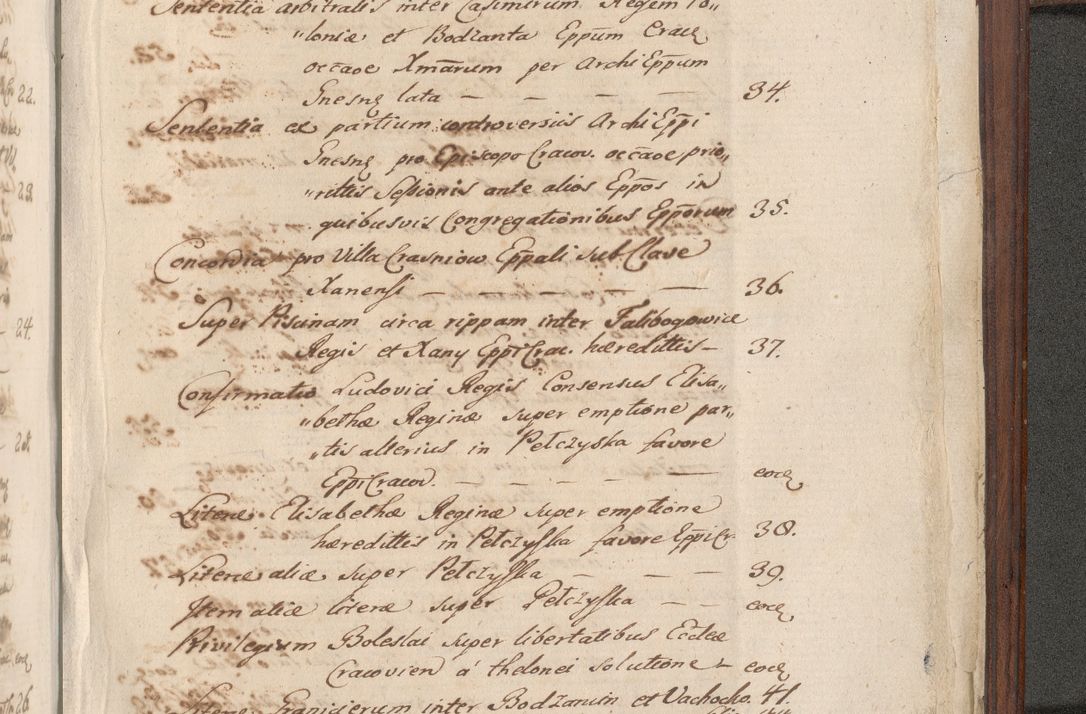 Sententia arbitralis inter Casimirum Regem Po„
„loniæ et Bodzanta Eppum Cracq
occãoe Xmãrum per Archi Eppum
Gnesnq lata — — — — 34.
Sententia ex partium controversiis Archi Eppi
Gnesnq pro Episcopo Cracov. occãoe prio„
„rittis Sessionis ante alios Eppos in
quibusvis Congregationibus Epporum 35.
Concordia pro Villa Crasniow Eppali sub Clave
Xanensi — — — — — — 36.
Super Piscinam circa rippam inter Falibogowice
Regis et Xany Eppi Crac. hæredittis — 37.
Confirmatio Ludovici Regis Consensus Elisa„
„bethæ Reginæ super emptione par„
„tis alterius in Pełczyska favore
Eppi Cracov. — — — — — eocq
Literæ Elisabethæ Reginæ super emptione
hæredittis in Pełczyska favore Eppi Cr. 38.
Literæ aliæ super Pełczyska — — — 39.
Item aliæ literæ super Pełczyska — — eocq
Privilegium Boleslai super libertatibus Eccleæ
Cracovien á thelonei solutione — eocq
Literæ Granicierum inter Bodzanin et Vachocko. 41.
22.
23.
24.
25.
eocq
26.